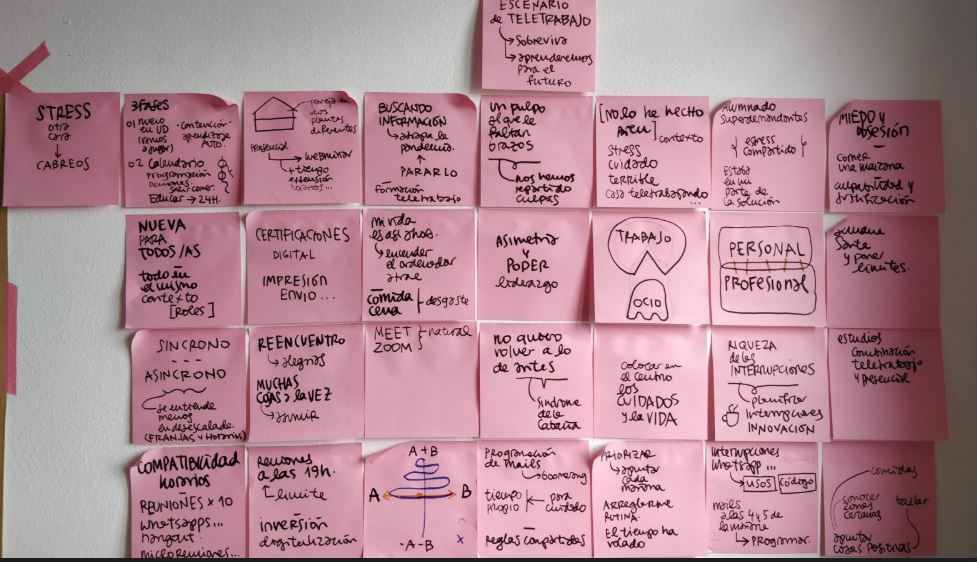 ESCENARIO
de TELETRABAJO
sobrevivir
aprenderemos
para el
futuro
STRESS
otra
cara
CABREOS
3 FASES
01 nuevo
en UD
(vamos
a jugar)
-contención-
aprendizaje
AUTO.
02 Calendario
Programación
Educar → 24H.
pareja en
dos
plantas
diferentes
Presencial
webminar
+ tiempo
extensión
horarios...
BUSCANDO
INFORMACIÓN
pandemia.
PARARLO
formación
teletrabajo
un pulpo
al que le
faltan
brazos
nos hemos
repartido
culpas
[No lo he hecho
bien]
contexto
stress
cuidado
terrible
casa teletrabajando
...
Alumnado
Superdemandantes
stress
compartido
Estaba
en mi
parte de
la solución
MIEDO y
obsesión
comer
una manzana
culpabilidad y
justificación
NUEVA
PARA
TODOS/AS
todo en
el mismo
contexto
[Roles]
CERTIFICACIONES
DIGITAL
IMPRESIÓN
ENVIO ...
mi vida
es así ahora.
encender
el ordenador
atrae
comida
cena
desgaste
ASIMETRÍA
y
PODER
liderazgo
TRABAJO
OCIO
PERSONAL
PROFESIONAL
semana
santa
y poner
límites.
SINCRONO
- - -
ASINCRONO
se entiende
menos
en desescalada
(FRANJAS y Horarios)
REENCUENTRO
alegrías
MUCHAS
COSAS a la VEZ
asumir
MEET
ZOOM
natural
no quiero
volver a lo
de antes
síndrome
de la
cabaña
colocar en
el centro
los
CUIDADOS
y la VIDA
RIQUEZA
de las
INTERRUPCIONES
planificar
interrupciones
INNOVACIÓN
estudios
combinación
teletrabajo
y presencial
COMPATIBILIDAD
horarios
REUNIONES x 10
whatsapps...
hangout
microReuniones...
Reuniones
a las 19h.
límite
inversión
digitalización
A+B
A
B
-A-B
x
Programación
de mails
boomerang
tiempo
propio
para
cuidado
reglas compartidas
PRIORIZAR
apuntar
cada
mañana
ARREGLARME
RUTINA.
El tiempo ha
volado
Interrupciones
Whatsapp ...
usos
código
mails
a las 4 y 5 de
la mañana
PROGRAMAR.
comidas
conocer
zones
cercanas
bailar
apuntar
cosas positivas